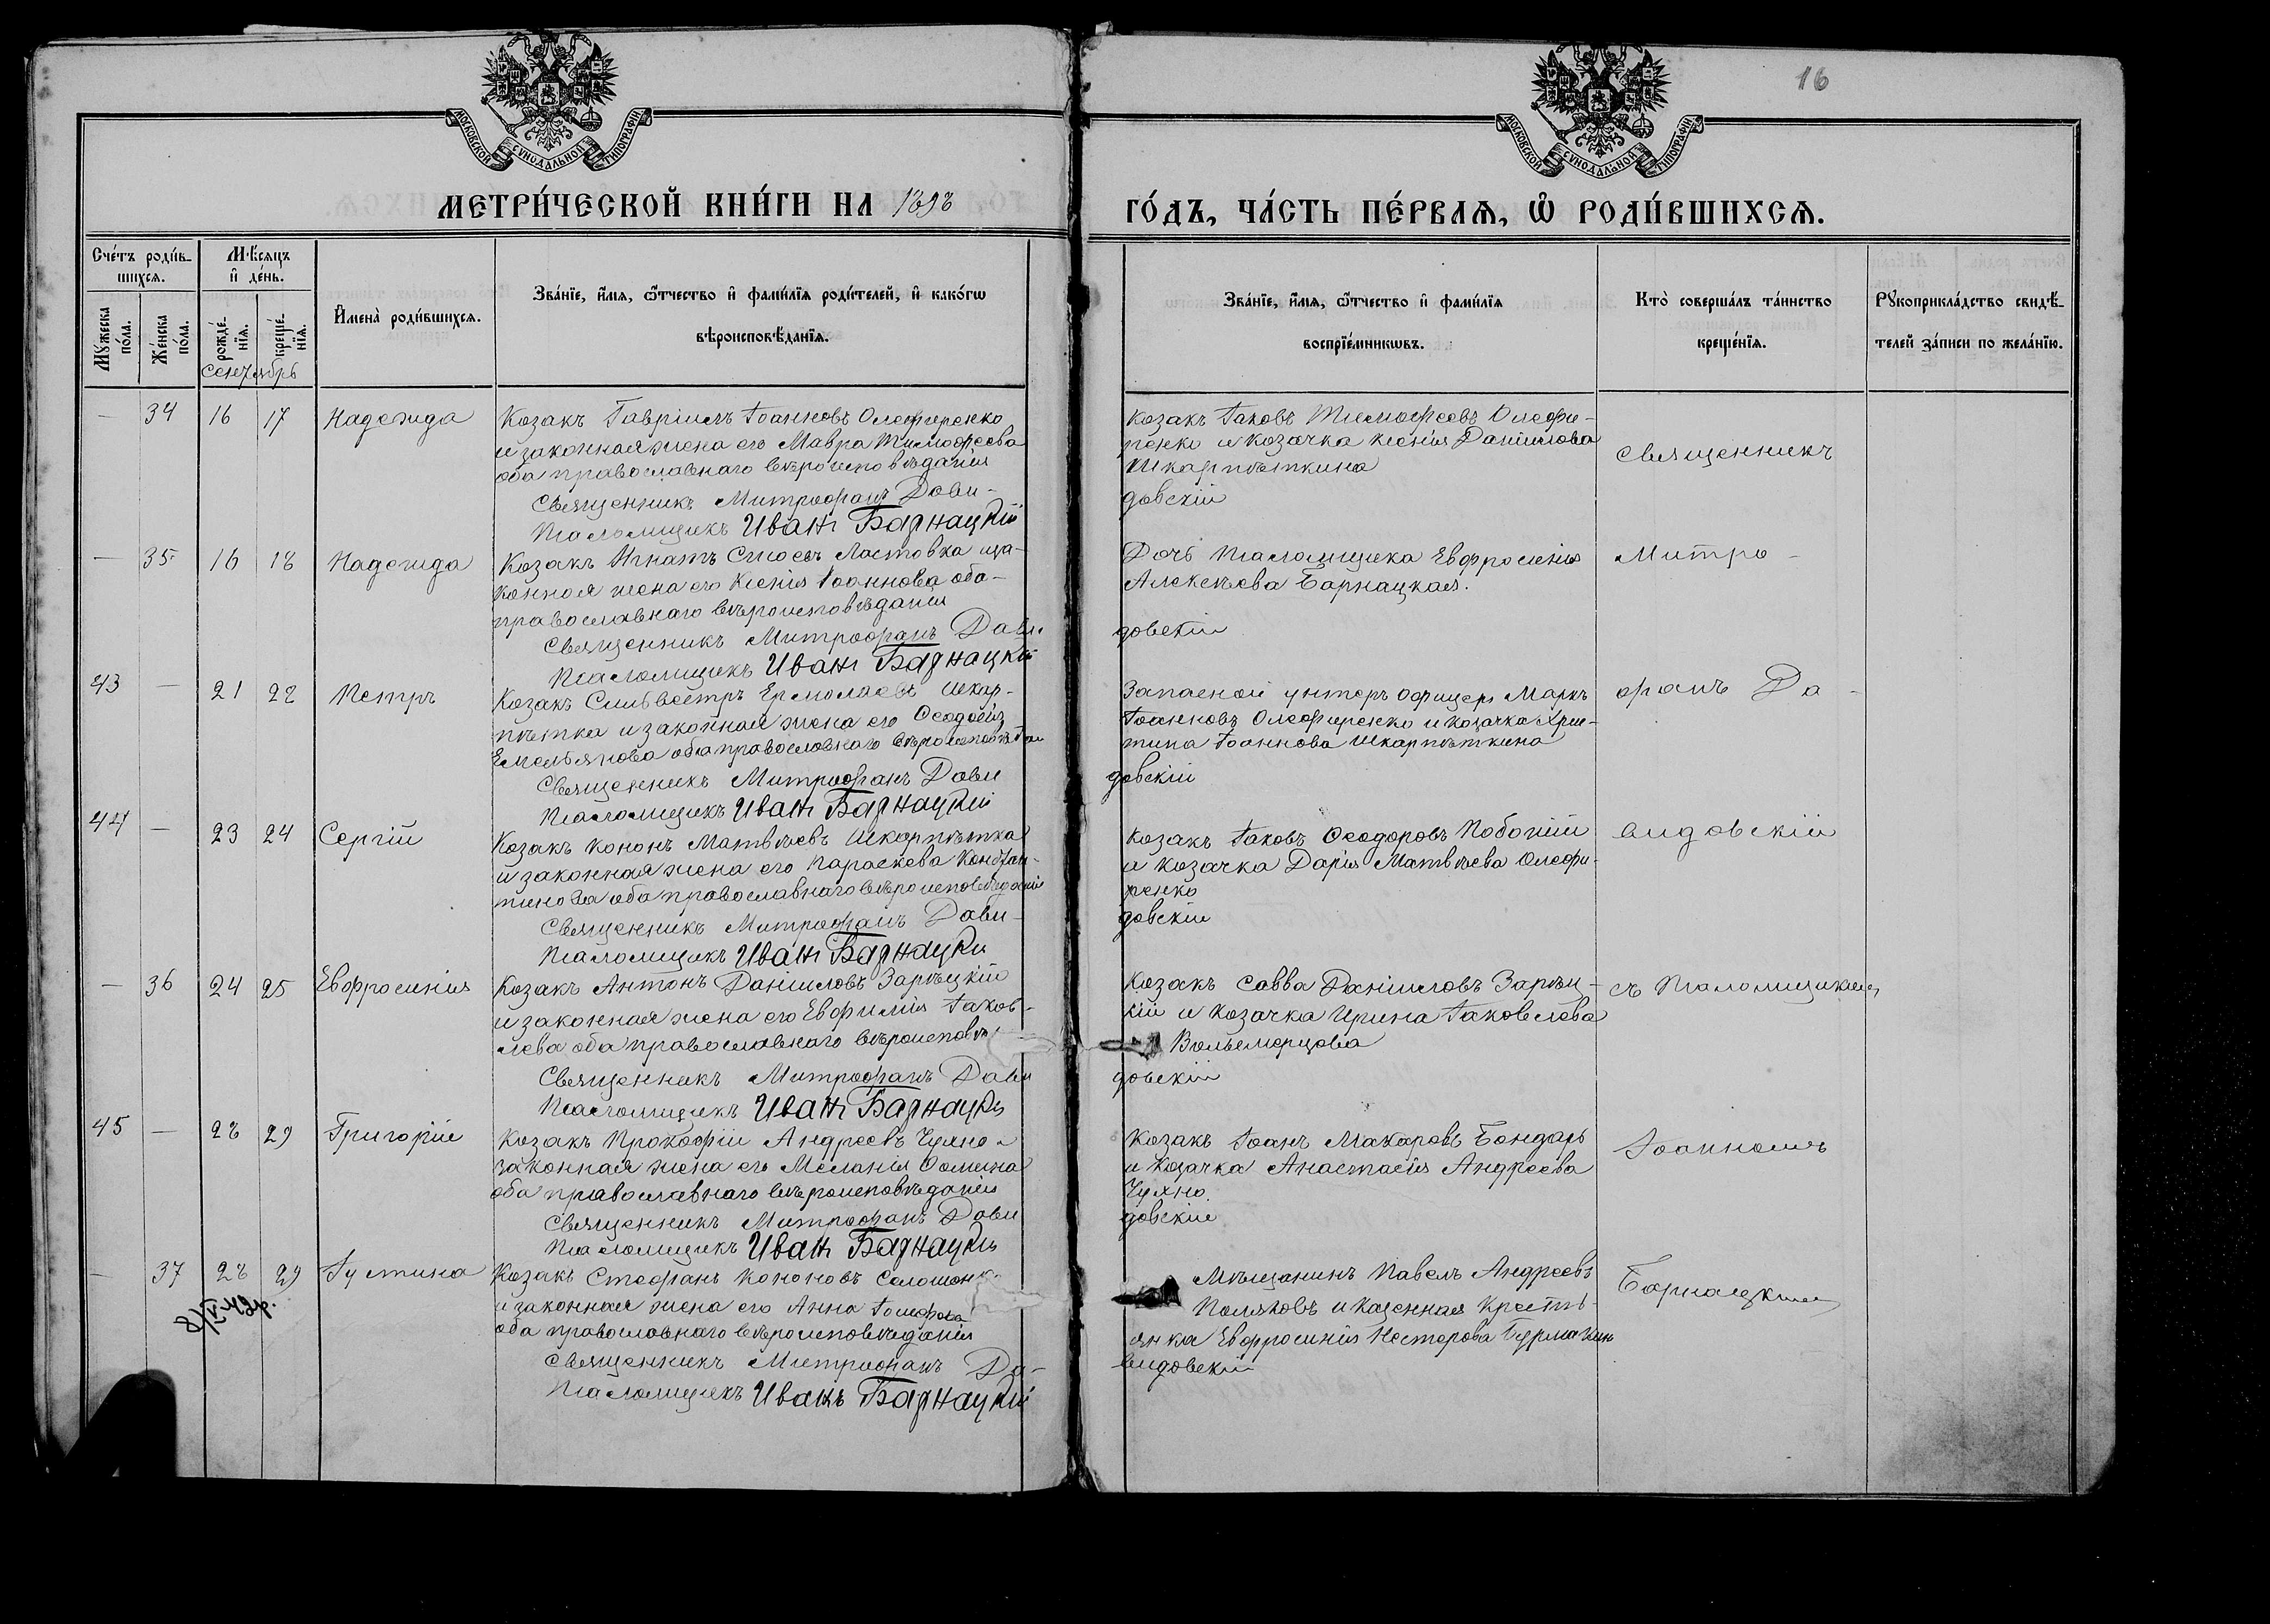 16
МОСКОВСКОЙ СУНОДАЛЬНОЙ ТИПОГРАФИИ
МОСКОВСКОЙ СУНОДАЛЬНОЙ ТИПОГРАФИИ
МЕТРИ́ЧЕСКОЙ КНИ́ГИ НА 1898
ГО́ДЪ, ЧА́СТЬ ПЕ́РВАѦ, Ѡ҆ РОДИ́ВШИХСѦ.
Сче́тъ роди́в-
шихсѧ.
Мѣ́сѧцъ
и҆ де́нь.
Му́жеска
по́ла.
Же́нска
по́ла.
рожде́-
нїѧ.
креще́-
нїѧ.
сентябрь
И҆мена̀ роди́вшихсѧ.
Зва́нїе, и҆́мѧ, ѻ҆́тчество и҆ фами́лїѧ роди́телей, и҆ како́гѡ
вѣроисповѣ́данїѧ.
Зва́нїе, и҆́мѧ, ѻ҆́тчество и҆ фами́лїѧ
воспрїе́мникѡвъ.
Кто̀ соверша́лъ та́инство
креще́нїѧ.
Рꙋкоприкла́дство свидѣ́-
телей за́писи по жела́нїю.
— 34 16 17 Надежда
Козакъ Гавріилъ Іоанновъ Олефиренко
и законная жена его Мавра Тимофеева
оба православнаго вѣроисповѣданія
Священникъ Митрофанъ Дави-
Псаломщикъ Иванъ Барнацкій
Козакъ Іаковъ Тимофеевъ Олефи-
ренко и козачка Ксенія Даніилова
Шкарпѣткина
довскій
Священникъ
— 35 16 18 Надежда
Козакъ Игнатъ Ластовка и за-
конная жена его Ксенія Іоаннова оба-
православнаго вѣроисповѣданія
Священникъ Митрофанъ Дави-
Псаломщикъ Иванъ Барнацкій
Дочь псаломщика Евфросинія
Алексѣева Барнацкая.
довскій
Митро-
43 — 21 22 Петръ
Козакъ Сильвестръ Ермолаевъ Шкар-
пѣтка и законная жена его Ѳеодосія
Емельянова оба православнаго
Священникъ Митрофанъ Дави
Псаломщикъ Иванъ Барнацкій
Запасной унтеръ офицеръ Маркъ
Іоанновъ Олефиренко и козачка Хри-
тина Іоаннова Шкарпѣткина
довскій
фанъ Да-
44 — 23 24 Сергій
Козакъ Кононъ Матвѣевъ Шкарпѣтка
и законная жена его Параскева Констан-
тинова оба православнаго вѣроисповѣданія
Священникъ Митрофанъ Дави-
Псаломщикъ Иванъ Барнацкій
Козакъ Іаковъ Ѳеодоровъ
и козачка Дарія Матвѣева Олефи-
ренко
довскій
видовскій
— 36 24 25 Евфросинія
Козакъ Антонъ Даніиловъ Зарѣцкій
и законная жена его Евфимія Іаков-
лева оба православнаго вѣроисповѣ
Священникъ Митрофанъ Дави
Псаломщикъ Иванъ Барнацкій
Козакъ Савва Даніиловъ Зарѣц-
кій и козачка Ирина Іаковлева
довскій
съ Псаломщикомъ
45 — 28 29 Григорій
Козакъ Прокофій Андреевъ Чухно и
законная жена его Меланія Ѳомина
оба православнаго вѣроисповѣданія
Священникъ Митрофанъ Дави
Псаломщикъ Иванъ Барнацкій
Козакъ Іоанъ Макаровъ Бондарь
и козачка Анастасія Андреева
Чухно.
довскій
Іоанномъ
— 37 28 29 Іустина
Козакъ Стефанъ Кононовъ
и законная жена его Анна Іосифова
оба православнаго вѣроисповѣданія
Священникъ Митрофанъ Да-
Псаломщикъ Иванъ Барнацкій
Мѣщанинъ Павелъ Андреевъ
Поляковъ и казенная кресть-
янка Евфросинія Нестерова
видовскій
Барнацкимъ